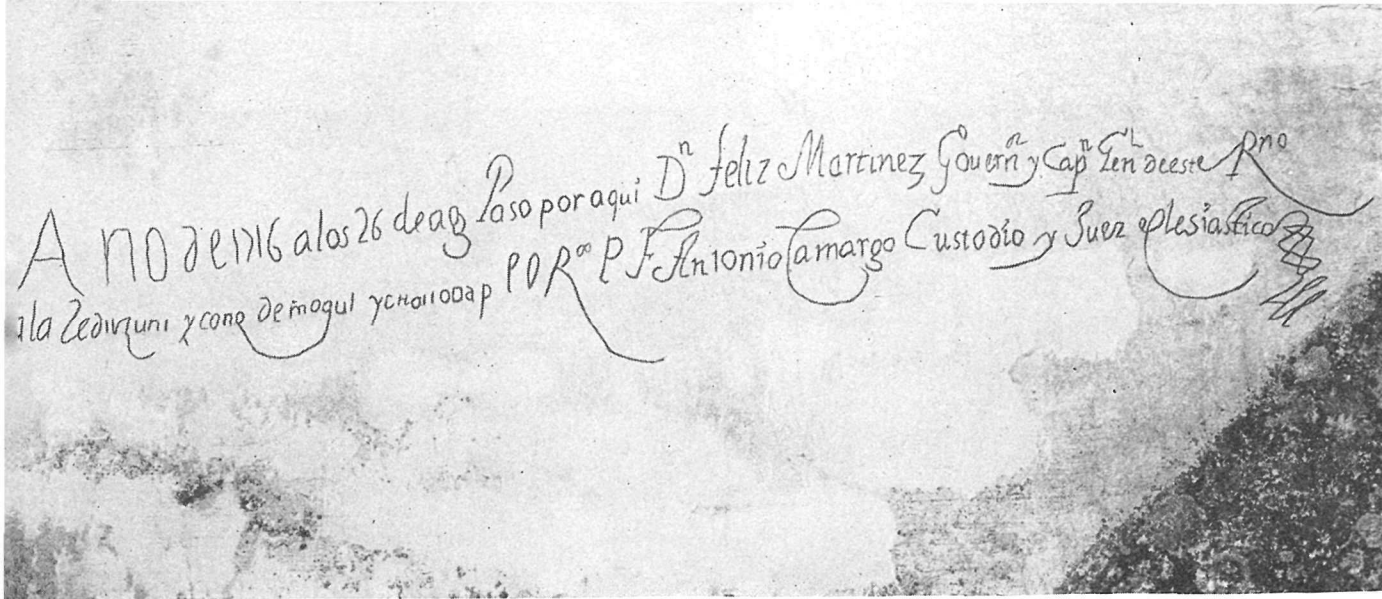 Año de 1716 a los 26 de agto Paso por aqui Dn Feliz Martinez Governr y Capn Genl de este Rno
a la y conq de moqui y en P F Antonio Camargo Custodio y Juez eclesiastico